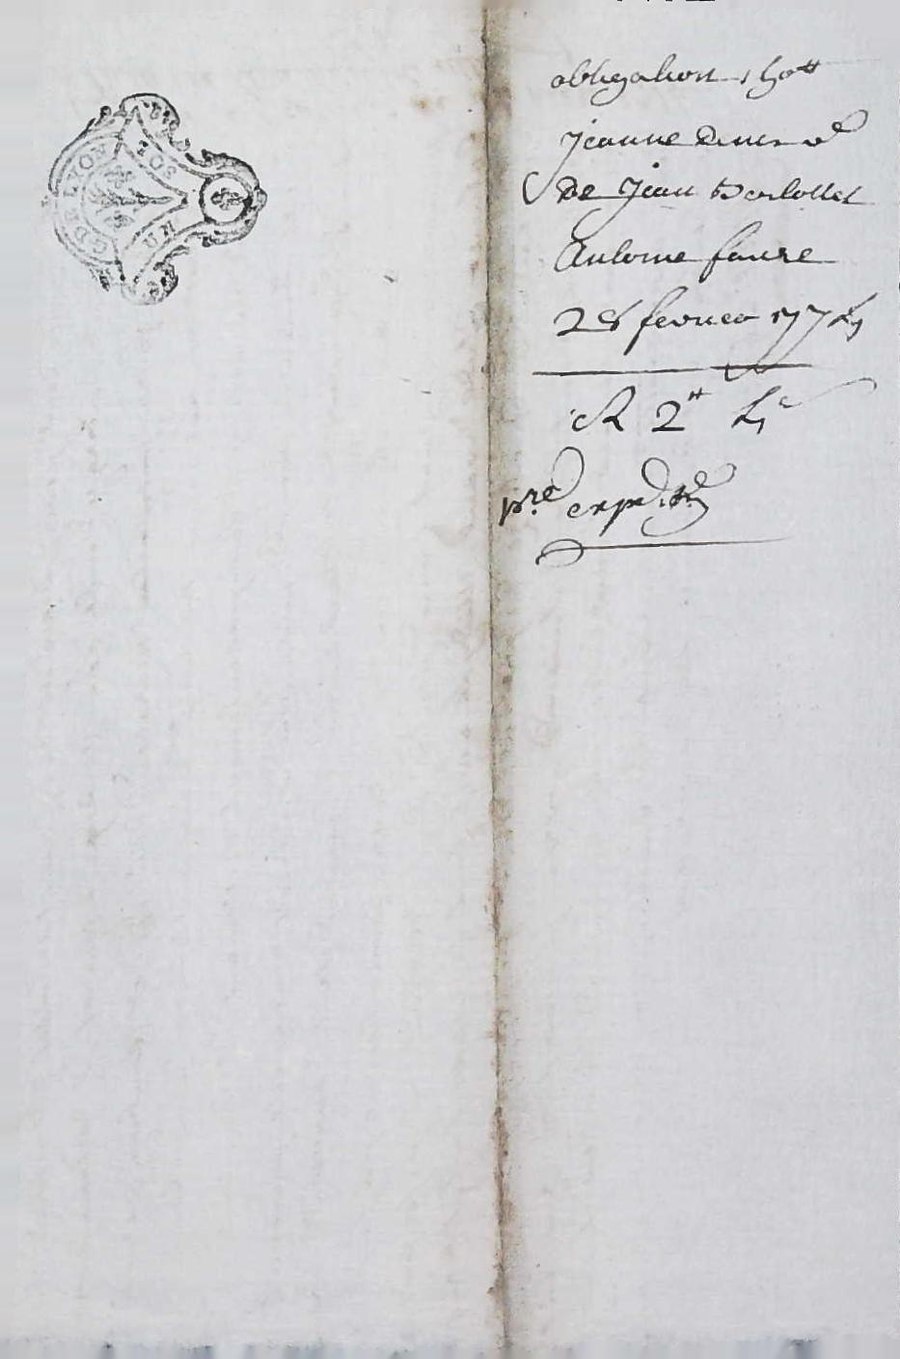 G. DE LYON
UN SOL
obligation 150 ₶
Jeanne ve
de Jean Berlottet
Antoine faure
28 fevrier 1774
2 ₶ 4 s
pre expedition